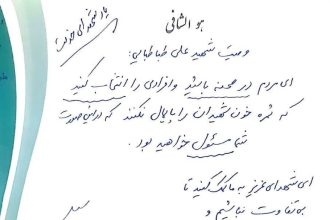 هو الشافی
وصیت شهید علی طباطبایی:
ای مردم در صحنه باشید و افرادی را انتخاب کنید
که ثمره خون شهیدان را پایمال نکنند که در این صورت
شما مسئول خواهید بود.
ای شهدای عزیز به ما کمک کنید تا
بی تفاوت نباشیم و